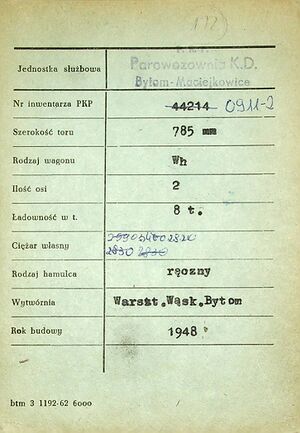 122)
P.K.P.
Jednostka służbowa Parowozownia K.D.
Bytom-Maciejkowice
Nr inwentarza PKP 44214 0911-2
Szerokość toru 785 mm
Rodzaj wagonu Wh
Ilość osi 2
Ładowność w t. 8 t.
Ciężar własny 2820
2830 2830
Rodzaj hamulca ręczny
Wytwórnia Warszt.Wąsk.Bytom
Rok budowy 1948
btm 3 1192-62 6000